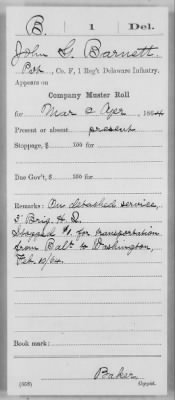 B. 1 Del.
John G. Barnett
Pvt., Co. F, 1 Reg't Delaware Infantry.
Appears on
Company Muster Roll
for Mar & Apr, 1864
Present or absent present
Stoppage, $ 100 for
Due Gov't, $ 100 for
Remarks: On detached service,
3' Brig. H. Q.
Stopped $1. for transportation
from Balt to Washington,
Feb. 19/64.
Book mark:
Baker
(358) Copyist.